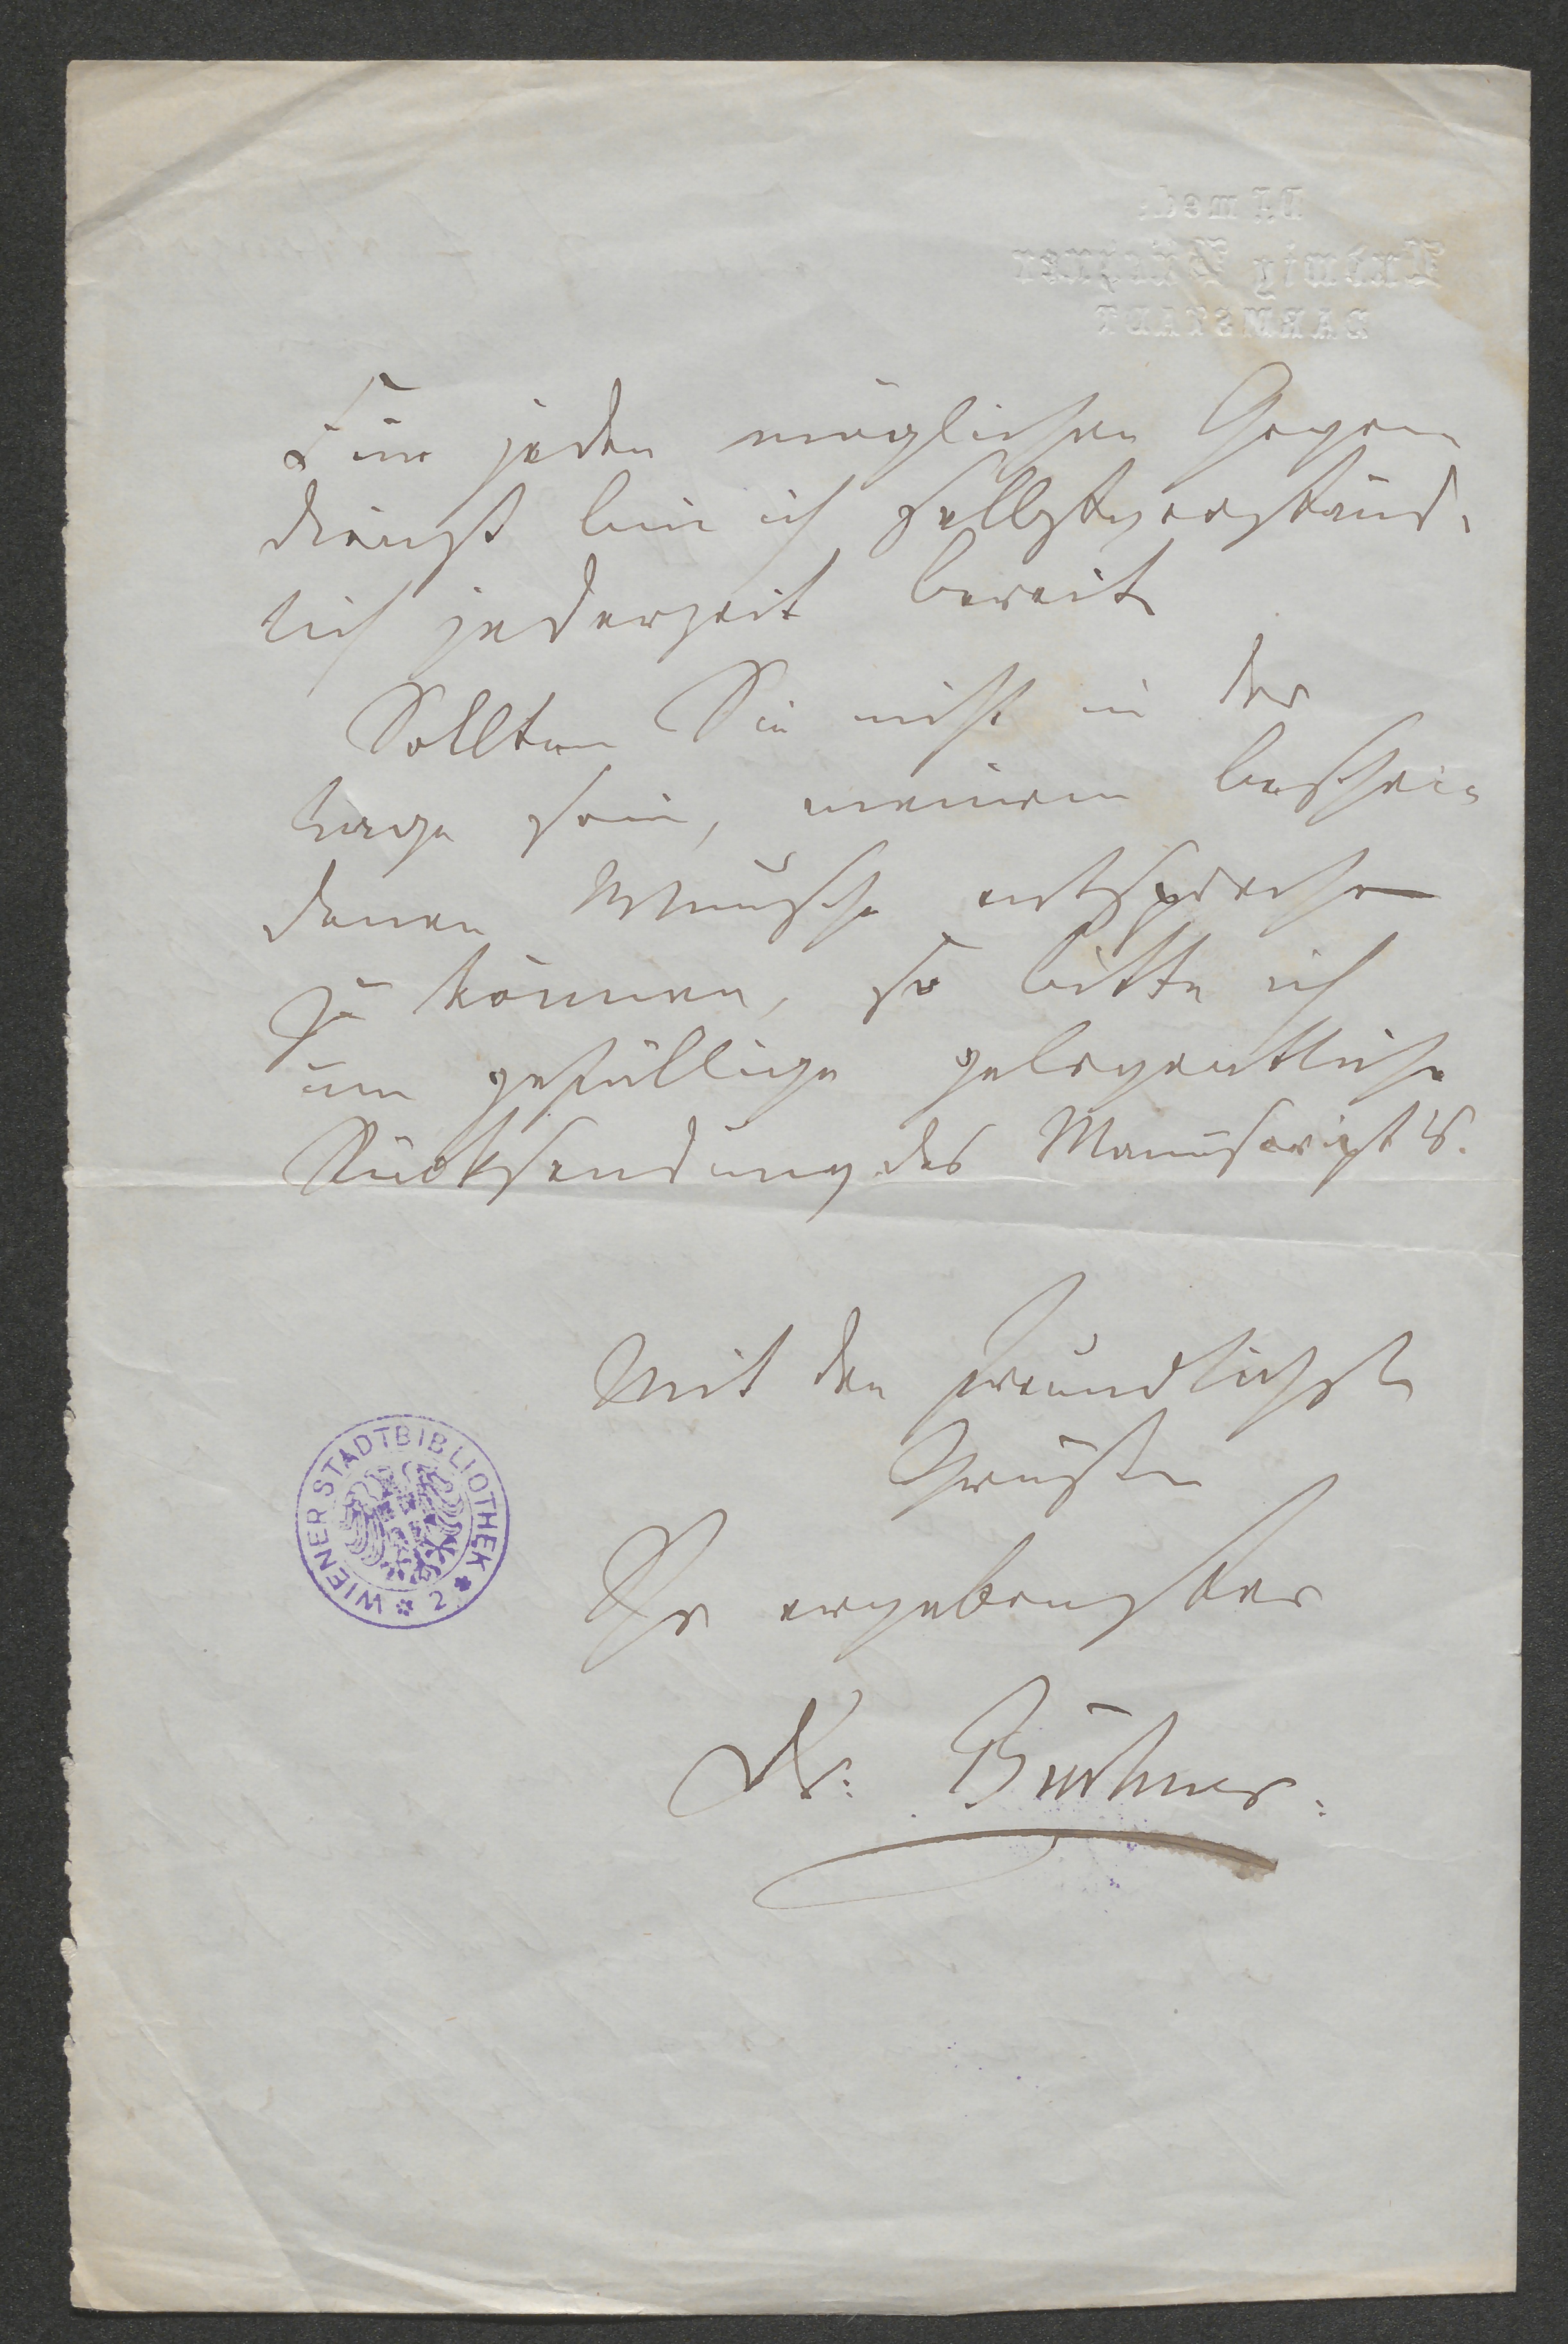 Dr. med.
Ludwig Büchner
DARMSTADT
Für jeden möglichen Gegen
dienst bin ich selbstverständ-
lich jederzeit bereit
Sollten Sie nicht in der
Lage sein, meinem beschei-
denen Wunsche entsprechen
zu können, so bitte ich
um gefällige gelegentliche
Rücksendung des Manuscripts.
Mit den freundlichsten
Grüßen
Ihr ergebenster
Dr. Büchner.
WIENER STADTBIBLIOTHEK * 2 *